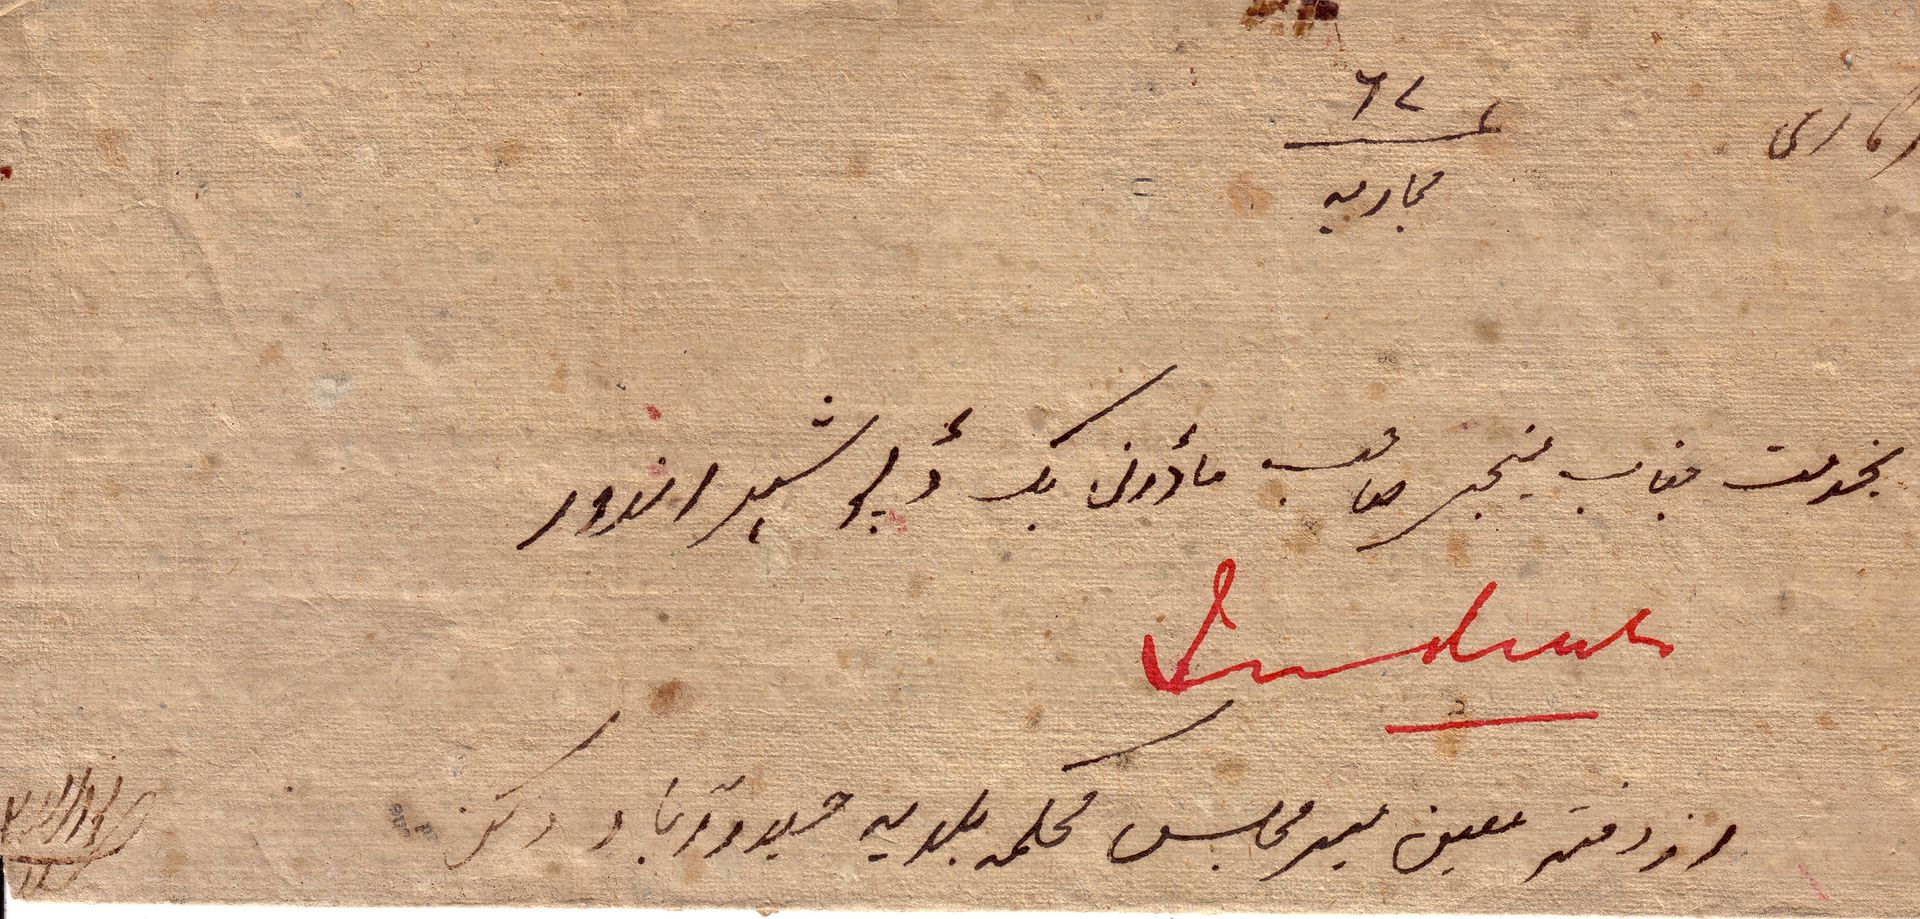 ۶۷
مجاریہ
بخدمت جناب منیجر صاحب ماڈرن بک ڈپو شہر اندور
Indore
از دفتر معین میر مجلس محکمہ بلدیہ حیدرآباد دکن